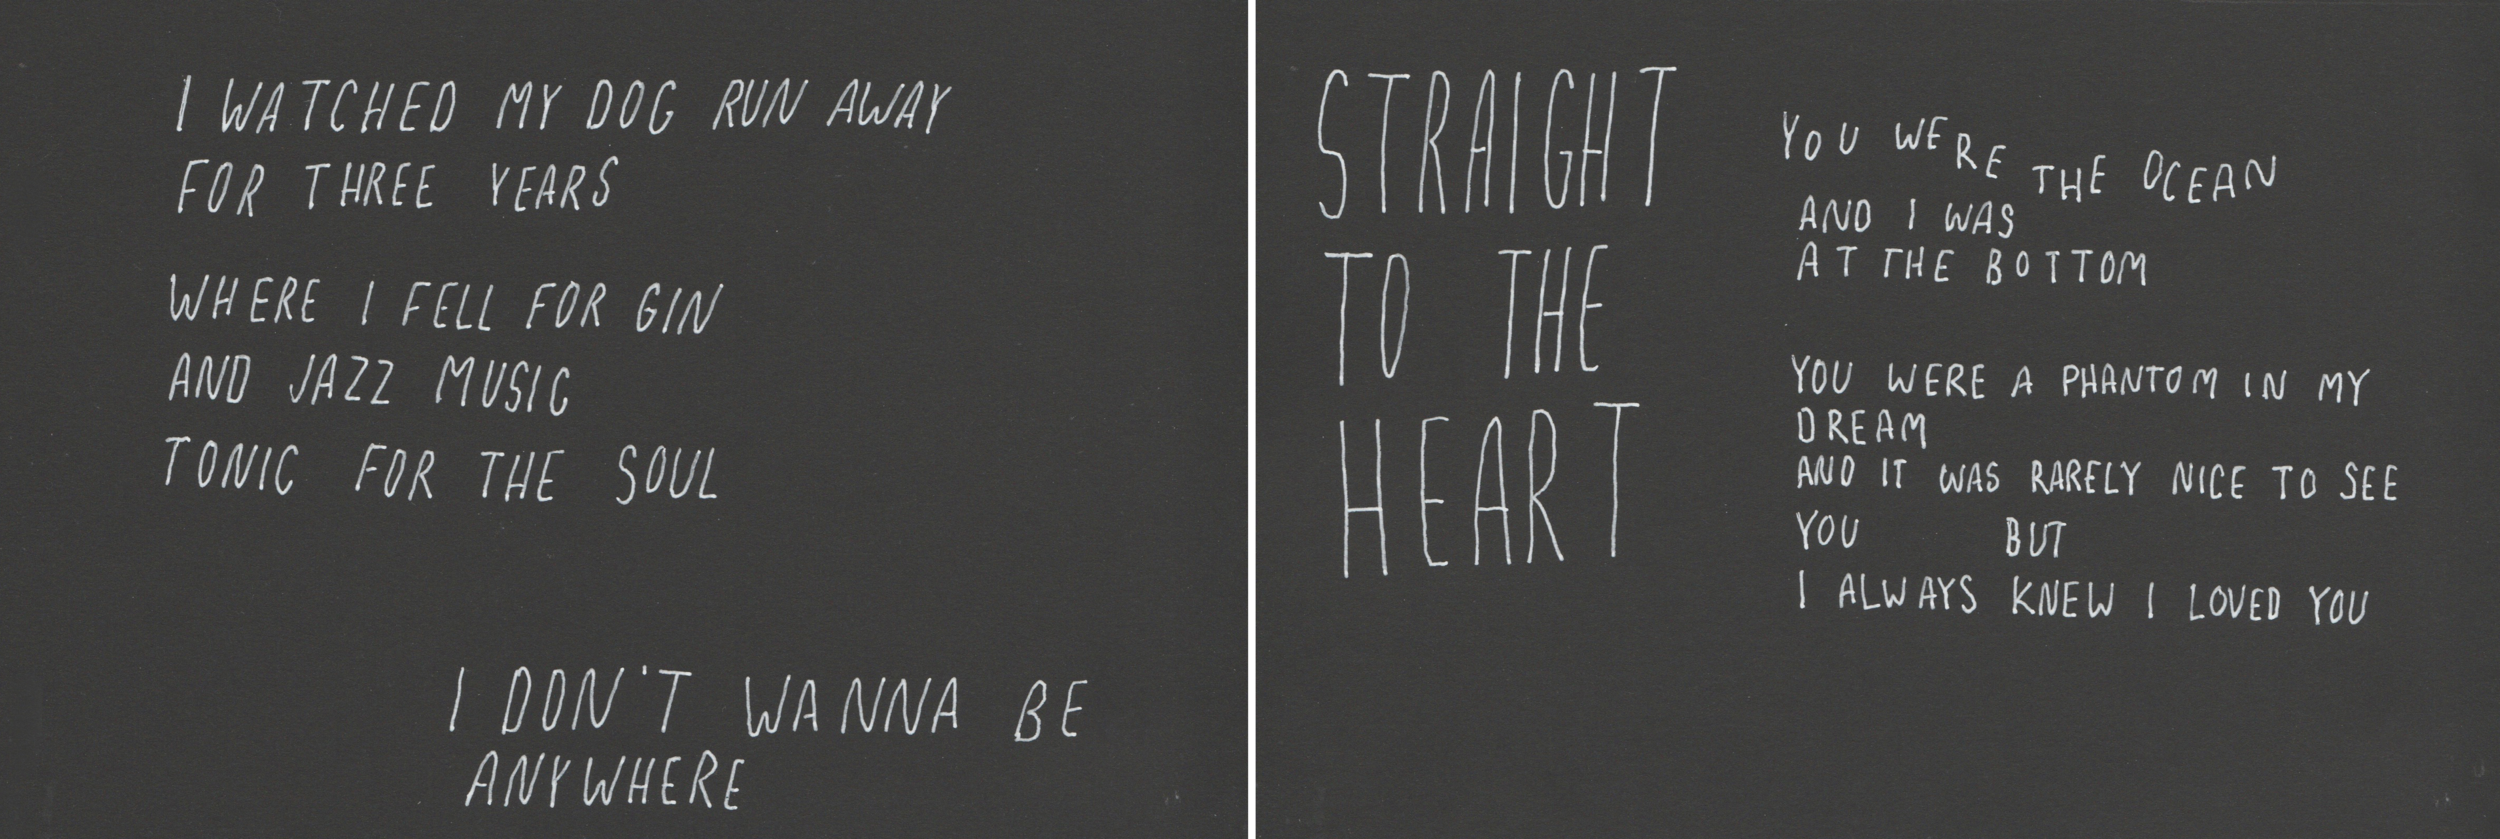 I WATCHED MY DOG RUN AWAY
FOR THREE YEARS
WHERE I FELL FOR GIN
AND JAZZ MUSIC
TONIC FOR THE SOUL
I DON'T WANNA BE
ANYWHERE
STRAIGHT
TO THE
HEART
YOU WERE THE OCEAN
AND I WAS
AT THE BOTTOM
YOU WERE A PHANTOM IN MY
DREAM
AND IT WAS RARELY NICE TO SEE
YOU BUT
I ALWAYS KNEW I LOVED YOU